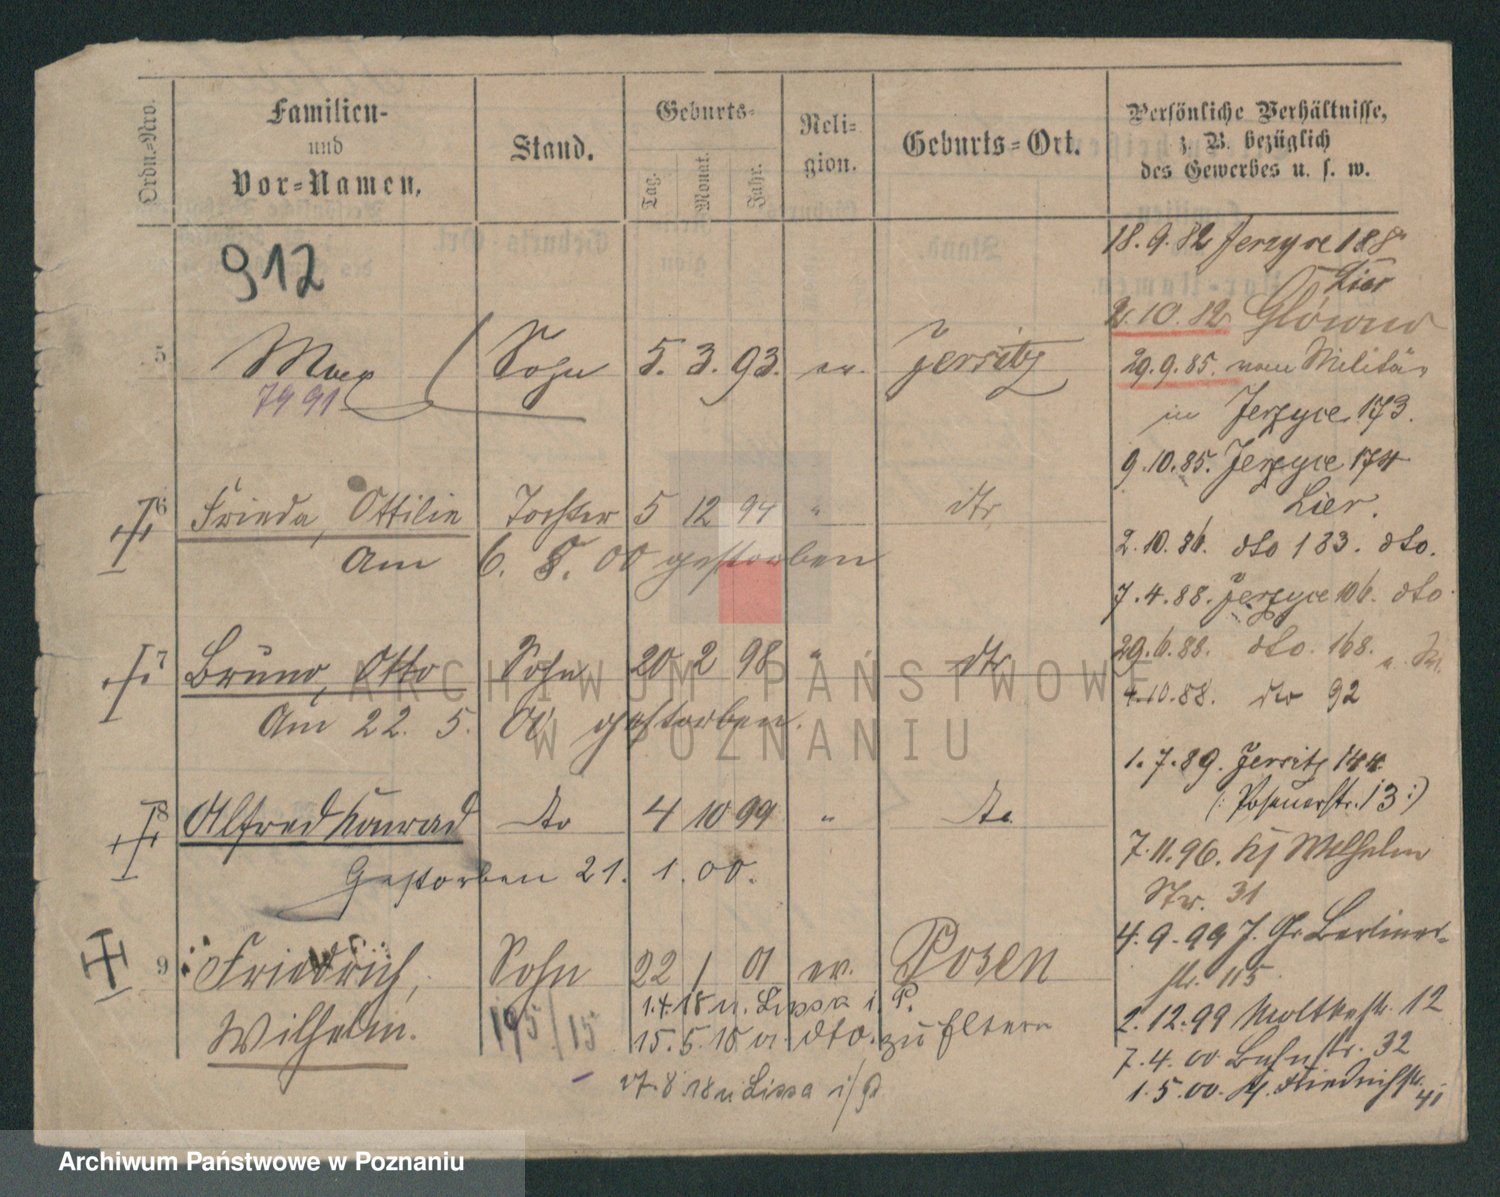 Ordn.-Nro.
Familien-
und
Vor-Namen.
Stand.
Geburts-
Tag.
Monat.
Jahr.
Reli-
gion.
Geburts-Ort.
Persönliche Verhältnisse,
z. B. bezüglich
des Gewerbes u. s. w.
912
5 Max Sohn 5. 3. 93. ev. Jersitz
7991
6 Frieda, Ottilie Tochter 5 12 94 " dto
Am 6. 8. 00 gestorben
7 Bruno, Otto Sohn 20 2 98 " dto
Am 22. 5. 00 gestorben.
8 Alfred Konrad dto 4 10 99 " dto
Gestorben 21. 1. 00.
9 Friedrich, Sohn 22 1 01 ev. Posen
Wilhelm.
195/15
1.4.18 n. Lissa i. P.
15.5.18 v. dto. zu Eltern
27.8.18 n Lissa i/P
18.9.82 Jerzyce 188
Lier
2.10.82 Główno
29.9.85. vom Militär
in Jerzyce 173.
9.10.85. Jerzyce 174
Lier.
2.10.86. dto 183. dto.
7.4.88. Jerzyce 106. dto
29.6.88. dto. 168.
4.10.88. dto 92
1.7.89. Jersitz 144
(: Posenerstr. 13 :)
7.11.96. Wilhelm
Str. 31
4.9.99 J. Gr. Berliner-
str. 115
2.12.99 Moltkestr. 12
7.4.00 Bahnstr. 32
1.5.00. Friedrichstr.
41
ARCHIWUM PAŃSTWOWE
W POZNANIU
Archiwum Państwowe w Poznaniu